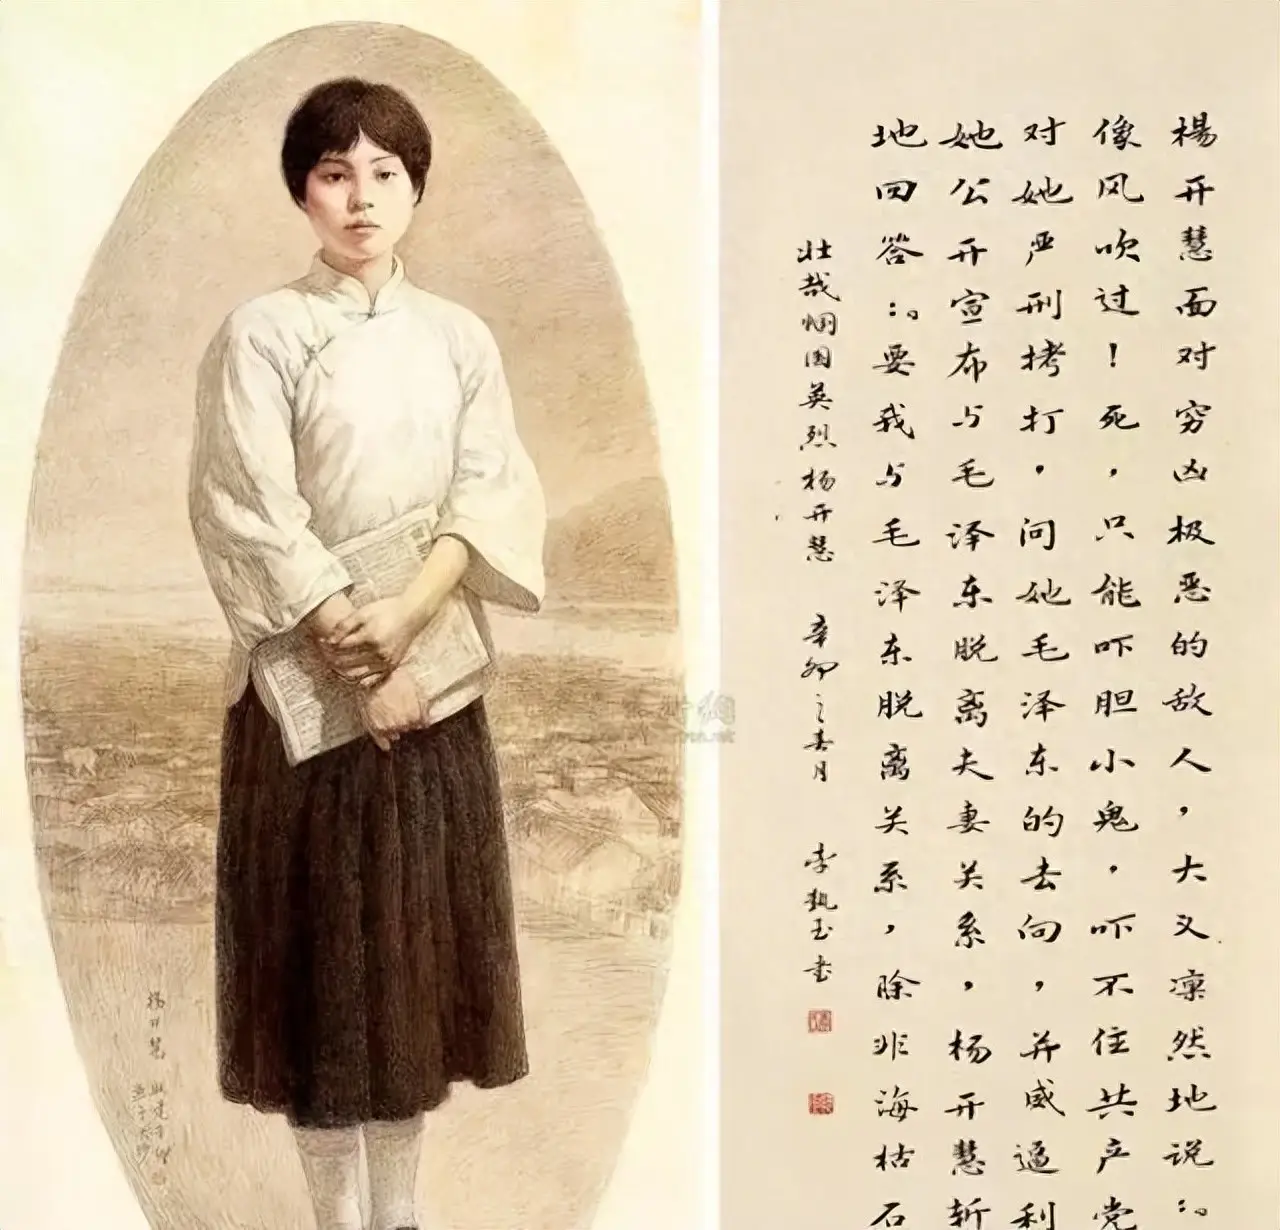 楊开慧面对穷凶极恶的敌人，大义凛然地说：。
像风吹过！死，只能吓胆小鬼，吓不住共产党
对她严刑拷打。问她毛泽东的去向，并威逼利
她公开宣布与毛泽东脱离夫妻关系，杨开慧斩
地回答：。要我与毛泽东脱离关系，除非海枯石
壮哉国英烈杨开慧 辛卯之春月 李玉书
杨开慧